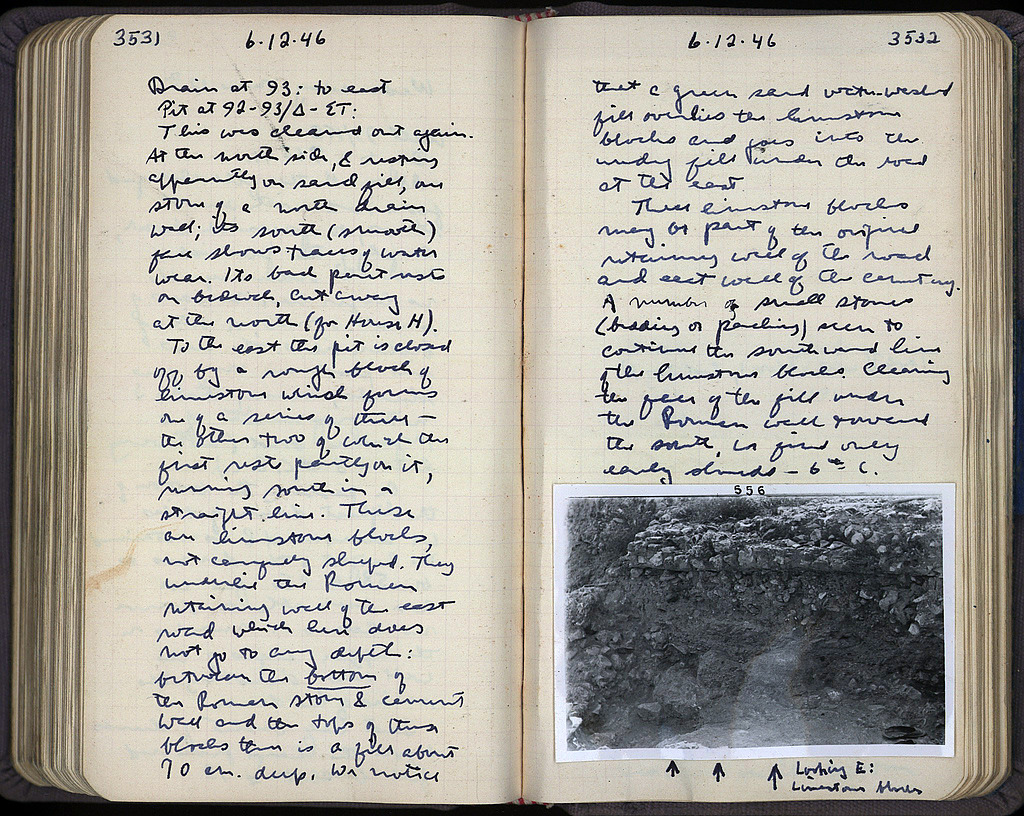 3531
6·12·46
Drain at 93: to east
Pit at 92-93/Δ-ΣΤ:
This was cleared out again.
At the north side, & resting
apparently on sand fill, one
stone of a north drain
wall; its south (smooth)
face shows traces of water
wear. Its back part rests
on bedrock, cut away
at the north (for House H).
To the east the pit is closed
off by a rough block of
limestone which forms
one of a series of three –
the other two of which the
first rests partly on it,
running south in a
straight line. These
are limestone blocks,
not carefully shaped. They
underlie the Roman
retaining wall of the east
road which here does
not go to any depth:
between the bottom of
the Roman stone & cement
wall and the tops of these
blocks there is a fill about
70 cm. deep. We notice
6·12·46
3532
that a green sand water-washed
fill overlies the limestone
blocks and goes into the
under fill under the road
at the east.
These limestone blocks
may be part of the original
retaining wall of the road
and east wall of the cemetery.
A number of small stones
(bedding or packing) seem to
continue the southward line
of the limestone blocks. Clearing
the face of the fill under
the Roman wall toward
the south, we find only
early sherds – 6th C.
556
Looking E:
Limestone blocks